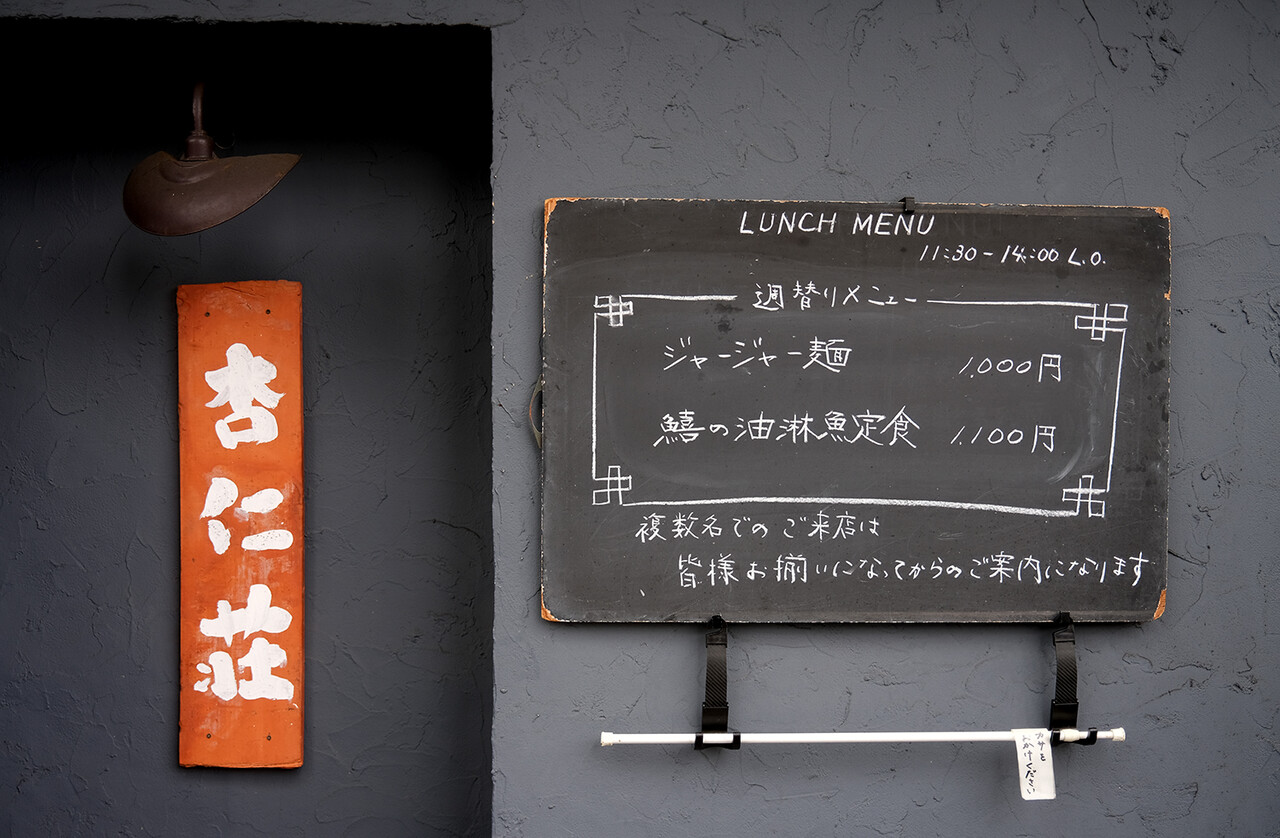 杏仁荘
LUNCH MENU
11:30-14:00 L.O.
週替りメニュー
ジャージャー麺 1,000円
鱚の油淋魚定食 1,100円
複数名でのご来店は
皆様お揃いになってからのご案内になります
カサを
おかけください